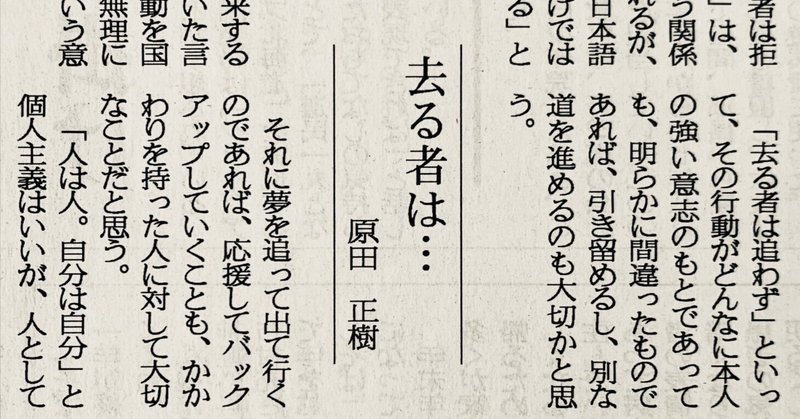 者は拒
」は、
う関係
れるが、
日本語
けでは
る」と
来する
いた言
動を国
無理に
いう意
去る者は…
原田　正樹
「去る者は追わず」といっ
て、その行動がどんなに本人
の強い意志のもとであって
も、明らかに間違ったもので
あれば、引き留めるし、別な
道を進めるのも大切かと思
う。
それに夢を追って出て行く
のであれば、応援してバック
アップしていくことも、かか
わりを持った人に対して大切
なことだと思う。
「人は人。自分は自分」と
個人主義はいいが、人として